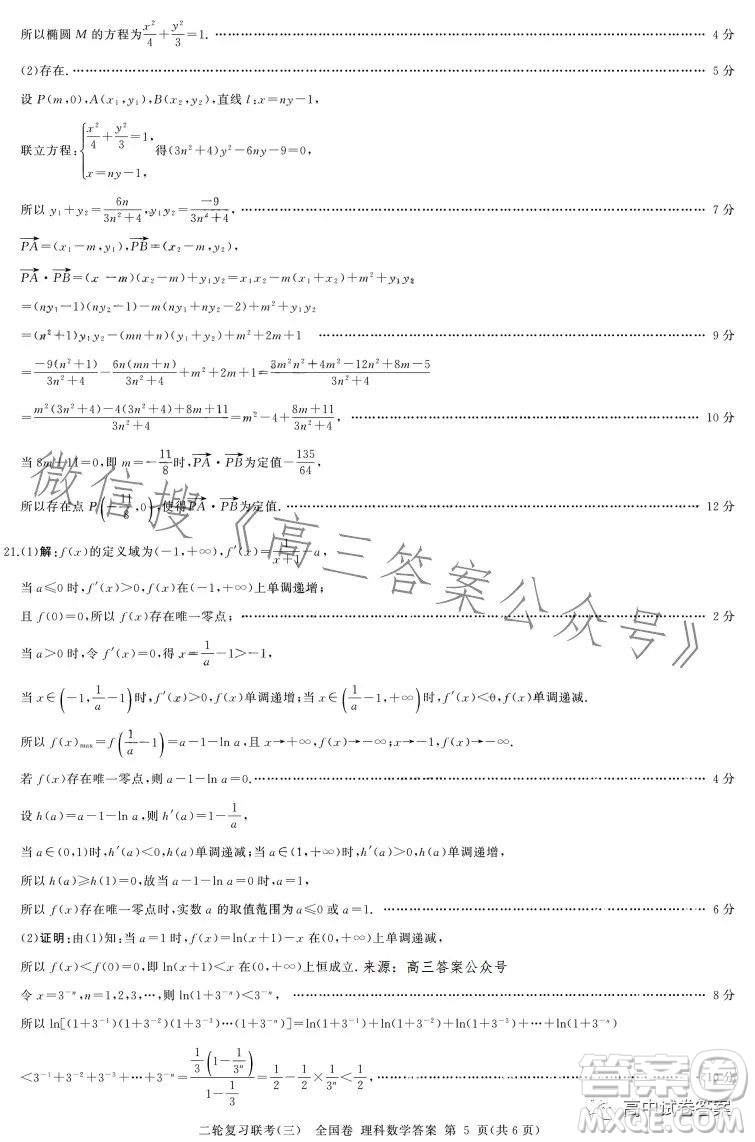 所以椭圆 M 的方程为x²/4+y²/3=1. 4 分
(2)存在. 5 分
设 P(m,0),A(x₁,y₁),B(x₂,y₂),直线 l:x=ny-1,
联立方程:{x²/4+y²/3=1, x=ny-1, 得(3n²+4)y²-6ny-9=0,
所以 y₁+y₂=6n/(3n²+4),y₁y₂=-9/(3n²+4), 7 分
PA=(x₁-m,y₁),PB=(x₂-m,y₂),
PA·PB=(x -m)(x₂-m)+y₁y₂=x₁x₂-m(x₁+x₂)+m²+y₁y₂
=(ny₁-1)(ny₂-1)-m(ny₁+ny₂-2)+m²+y₁y₂
=(n²+1)y₁y₂-(mn+n)(y₁+y₂)+m²+2m+1 9 分
=-9(n²+1)/(3n²+4)-6n(mn+n)/(3n²+4)+m²+2m+1=(3m²n²+4m²-12n²+8m-5)/(3n²+4)
=(m²(3n²+4)-4(3n²+4)+8m+11)/(3n²+4)=m²-4+(8m+11)/(3n²+4), 10 分
当 8m+11=0,即 m=-11/8时,PA·PB为定值-135/64,
所以存在点 P(-11/8,0),使得PA·PB为定值. 12 分
21.(1)解:f(x)的定义域为(-1,+∞),f′(x)=1/(x+1)-a,
当 a≤0 时,f′(x)>0,f(x)在(-1,+∞)上单调递增;
且 f(0)=0,所以 f(x)存在唯一零点; 2 分
当 a>0 时,令 f′(x)=0,得 x=1/a-1>-1,
当 x∈(-1,1/a-1)时,f′(x)>0,f(x)单调递增;当 x∈(1/a-1,+∞)时,f′(x)<0,f(x)单调递减.
所以 f(x)max=f(1/a-1)=a-1-ln a,且 x→+∞,f(x)→-∞;x→-1,f(x)→-∞.
若 f(x)存在唯一零点,则 a-1-ln a=0. 4 分
设 h(a)=a-1-ln a,则 h′(a)=1-1/a,
当 a∈(0,1)时,h′(a)<0,h(a)单调递减;当 a∈(1,+∞)时,h′(a)>0,h(a)单调递增,
所以 h(a)≥h(1)=0,故当 a-1-ln a=0 时,a=1,
所以 f(x)存在唯一零点时,实数 a 的取值范围为 a≤0 或 a=1. 6 分
(2)证明:由(1)知:当 a=1 时,f(x)=ln(x+1)-x 在(0,+∞)上单调递减,
所以 f(x)<f(0)=0,即 ln(1+x)<x 在(0,+∞)上恒成立. 来源:高三答案公众号
令 x=3⁻ⁿ,n=1,2,3,…,则 ln(1+3⁻ⁿ)<3⁻ⁿ, 8 分
所以 ln[(1+3⁻¹)(1+3⁻²)(1+3⁻³)…(1+3⁻ⁿ)]=ln(1+3⁻¹)+ln(1+3⁻²)+ln(1+3⁻³)+…+ln(1+3⁻ⁿ)
<3⁻¹+3⁻²+3⁻³+…+3⁻ⁿ=1/3(1-1/3ⁿ)/(1-1/3)=1/2-1/2×1/3ⁿ<1/2, 10 分
二轮复习联考(三) 全国卷 理科数学答案 第 5 页(共 6 页)
微信搜《高三答案公众号》
答案圈
高中试卷答案